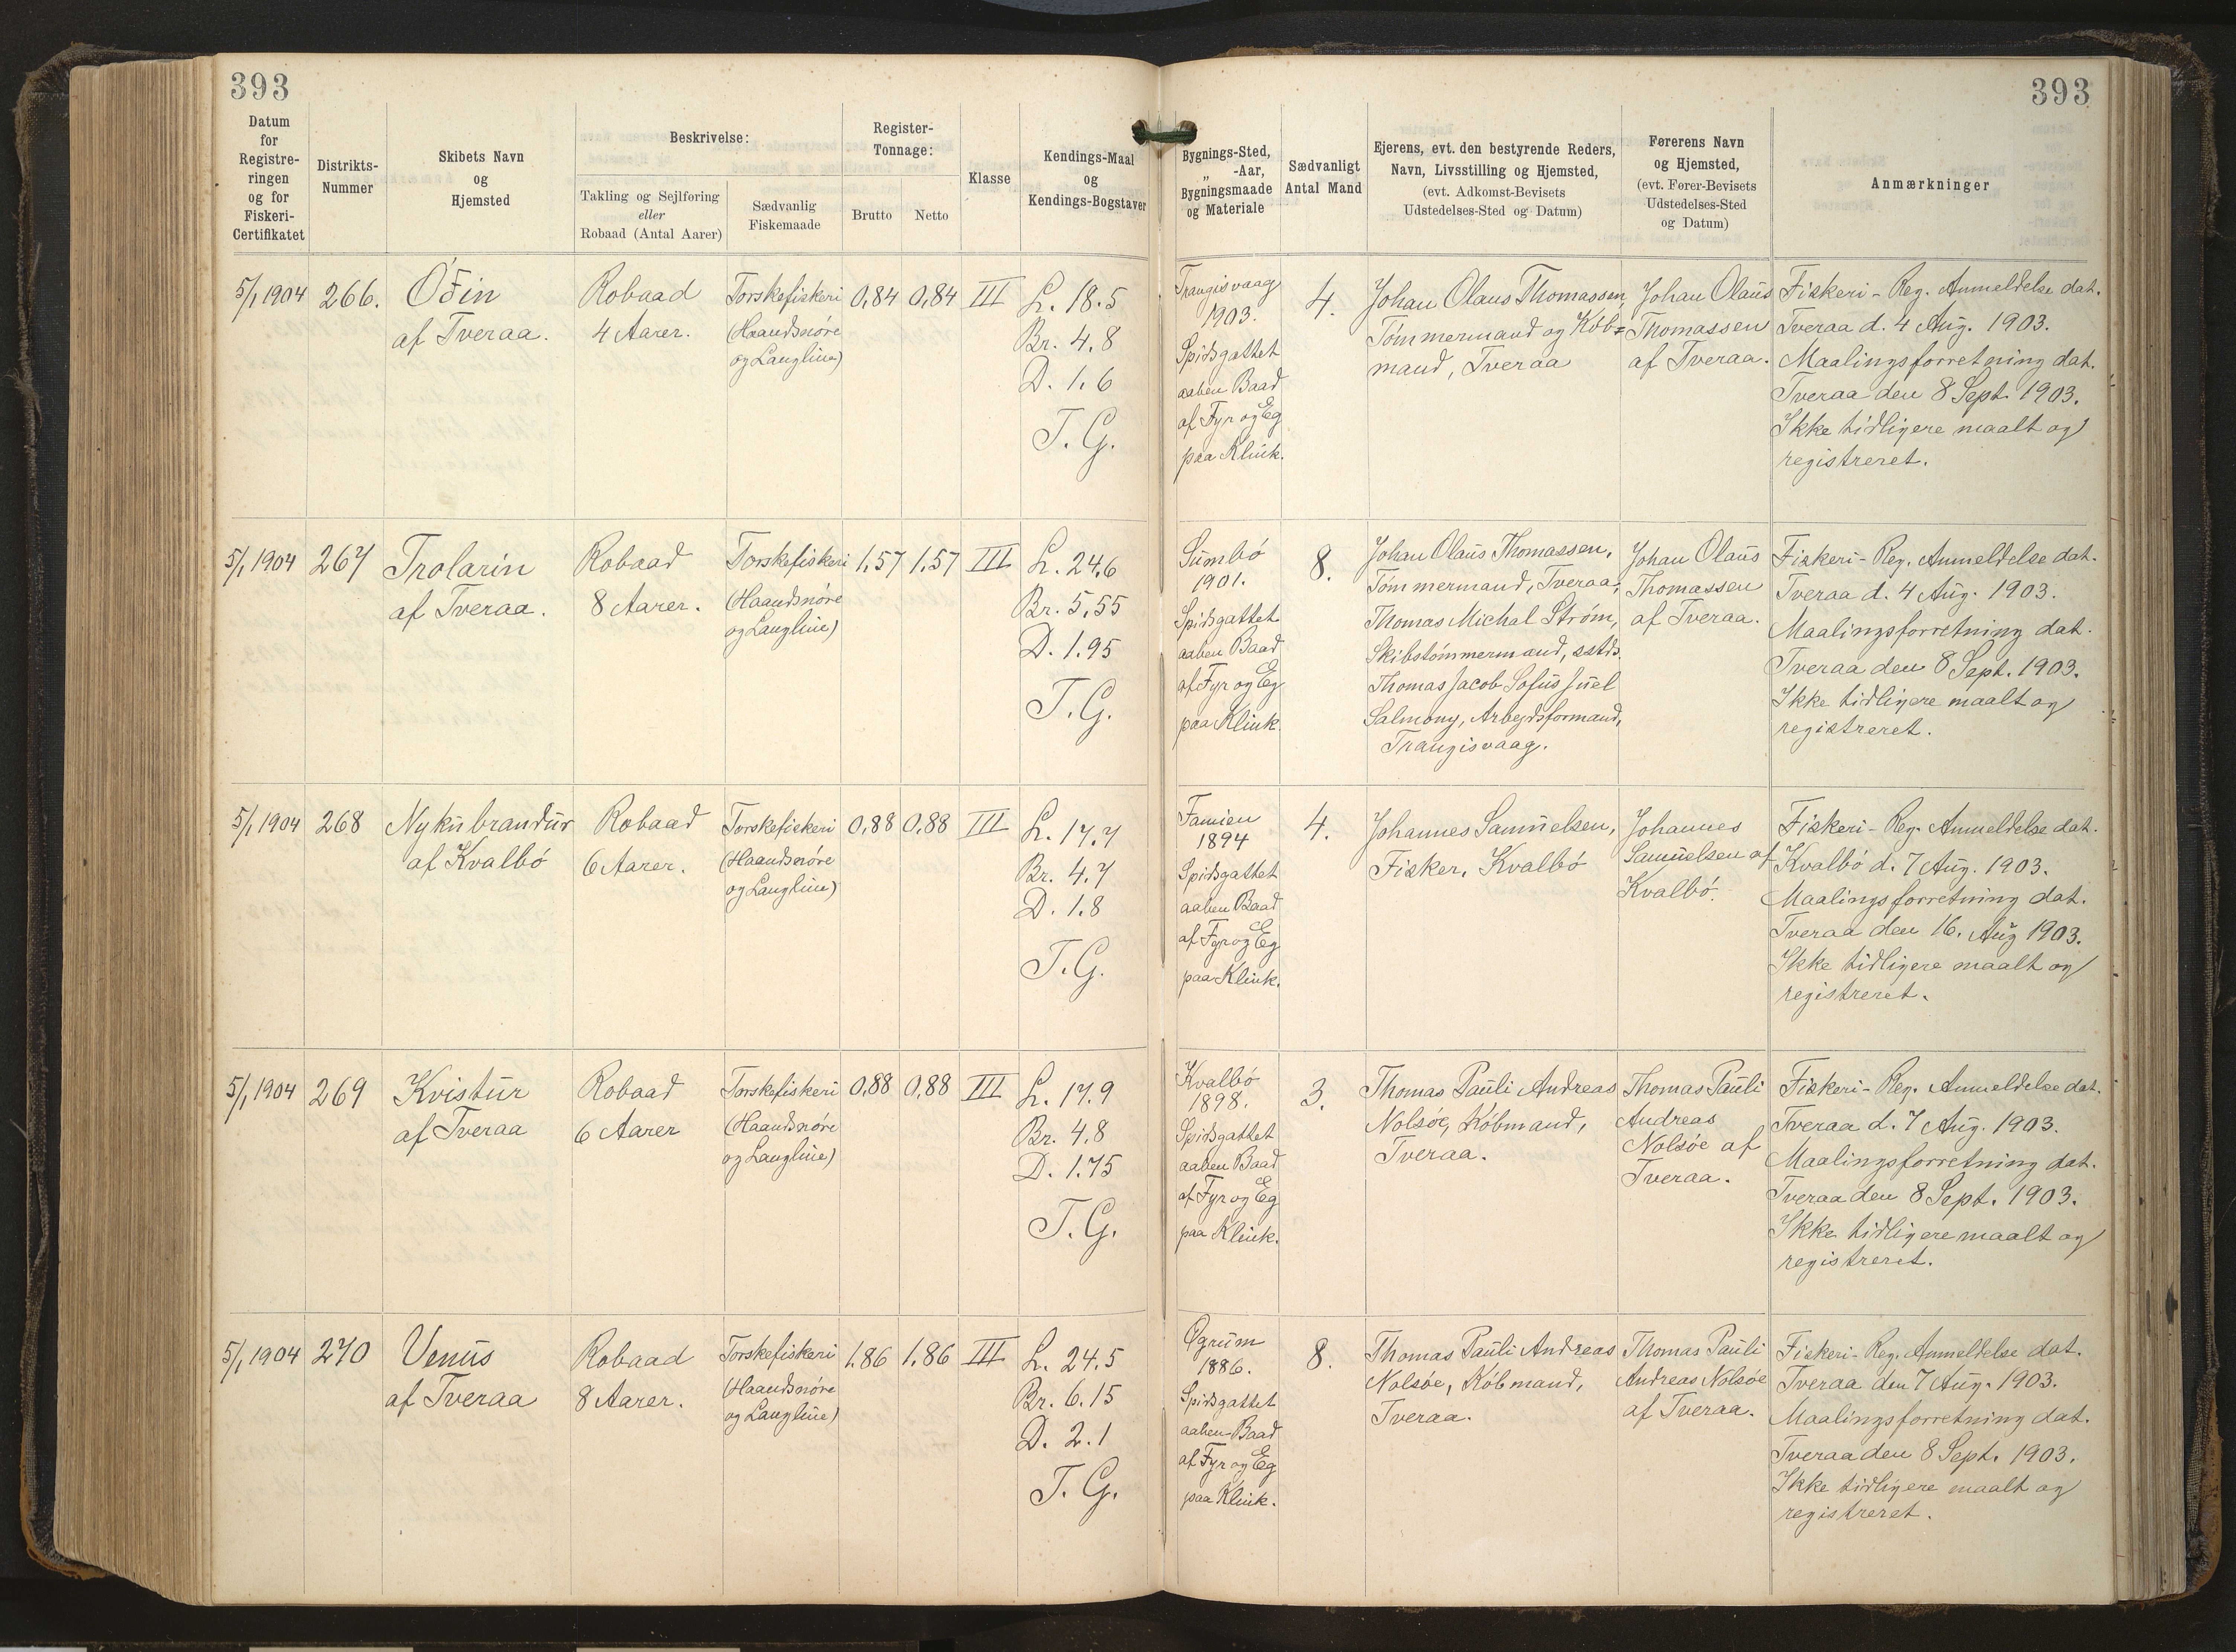 393
393
Datum
for
Registre-
ringen
og for
Fiskeri-
Certifikatet
Distrikts-
Nummer
Skibets Navn
og
Hjemsted
Beskrivelse:
Takling og Sejlføring
eller
Robaad (Antal Aarer)
Sædvanlig
Fiskemaade
Register-
Tonnage:
Brutto
Netto
Klasse
Kendings-Maal
og
Kendings-Bogstaver
Bygnings-Sted,
„ -Aar,
Bygningsmaade
og Materiale
Sædvanligt
Antal Mand
Ejerens, evt. den bestyrende Reders,
Navn, Livsstilling og Hjemsted,
(evt. Adkomst-Bevisets
Udstedelses-Sted og Datum)
Førerens Navn
og Hjemsted,
(evt. Fører-Bevisets
Udstedelses-Sted
og Datum)
Anmærkninger
5/1 1904
266.
Óðin
af Tveraa.
Robaad
4 Aarer.
Torskefiskeri
(Haandsnöre
og Langline)
0,84
0,84
III
L. 18.5
Br. 4,8
D. 1.6
T. G.
Trangisvaag
1903.
Spidsgattet
aaben Baad
af Fyr og Eg
paa Klink.
4.
Johan Olaus Thomassen,
Tömmermand og Köb=
mand, Tveraa
Johan Olaus
Thomassen
af Tveraa.
Fiskeri-Reg. Anmeldelse dat.
Tveraa d. 4 Aug. 1903.
Maalingsforretning dat.
Tveraa den 8 Sept. 1903.
Ikke tidligere maalt og
registreret.
5/1 1904
267
Trolarin
af Tveraa.
Robaad
8 Aarer.
Torskefiskeri
(Haandsnöre
og Langline)
1,57
1,57
III
L. 24,6
Br. 5,55
D. 1.95
T. G.
Sumbö
1901.
Spidsgattet
aaben Baad
af Fyr og Eg
paa Klink.
8.
Johan Olaus Thomassen,
Tömmermand, Tveraa,
Thomas Michal Ström,
Skibstömmermand, sstds.
Thomas Jacob Sofus Juel
Salmony, Arbejdsformand,
Trangisvaag.
Johan Olaus
Thomassen
af Tveraa.
Fiskeri-Reg. Anmeldelse dat.
Tveraa d. 4 Aug. 1903.
Maalingsforretning dat.
Tveraa den 8 Sept. 1903.
Ikke tidligere maalt og
registreret.
5/1 1904
268
Nykubrandur
af Kvalbö
Robaad
6 Aarer.
Torskefiskeri
(Haandsnöre
og Langline)
0,88
0,88
III
L. 17.7
Br. 4.7
D. 1.8
T. G.
Famien
1894
Spidsgattet
aaben Baad
af Fyr og Eg
paa Klink.
4.
Johannes Samuelsen,
Fisker, Kvalbö
Johannes
Samuelsen af
Kvalbö.
Fiskeri-Reg. Anmeldelse dat.
Kvalbö d. 7 Aug. 1903.
Maalingsforretning dat.
Tveraa den 16. Aug 1903.
Ikke tidligere maalt og
registreret.
5/1 1904
269
Kvistur
af Tveraa
Robaad
6 Aarer
Torskefiskeri
(Haandsnöre
og Langline)
0,88
0,88
III
L. 17.9
Br. 4.8
D. 1.75
T. G.
Kvalbö
1898.
Spidsgattet
aaben Baad
af Fyr og Eg
paa Klink.
3.
Thomas Pauli Andreas
Nolsöe, Köbmand,
Tveraa.
Thomas Pauli
Andreas
Nolsöe af
Tveraa.
Fiskeri-Reg. Anmeldelse dat.
Tveraa d. 7 Aug. 1903.
Maalingsforretning dat.
Tveraa den 8 Sept. 1903.
Ikke tidligere maalt og
registreret.
5/1 1904
270
Venus
af Tveraa
Robaad
8 Aarer.
Torskefiskeri
(Haandsnöre
og Langline)
1.86
1.86
III
L. 24.5
Br. 6.15
D. 2.1
T. G.
Øgrum
1886.
Spidsgattet
aaben Baad
af Fyr og Eg
paa Klink.
8.
Thomas Pauli Andreas
Nolsöe, Köbmand,
Tveraa.
Thomas Pauli
Andreas Nolsöe
af Tveraa.
Fiskeri-Reg. Anmeldelse dat.
Tveraa den 7 Aug. 1903.
Maalingsforretning dat.
Tveraa den 8 Sept. 1903.
Ikke tidligere maalt og
registreret.